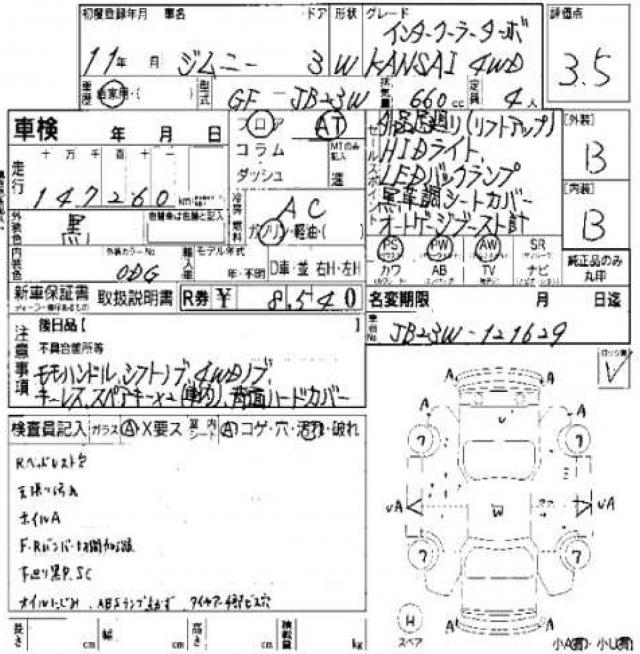 初度登録年月 車名 ドア 形状 グレード 評価点
インタークーラーターボ
11年 月 ジムニー 3 W KANSAI 4WD 3.5
車歴 自家用・( ) 型式 GF-JB23W 排気量 660cc 定員 4人
車検 年 月 日
フロア AT
コラム
ダッシュ
MTのみ記入 速
セールスポイント
外品足廻り(リフトアップ)
HIDライト、
LEDバックランプ
黒革調シートカバー
オートゲージブースト計
[外装] B
[内装] B
走行 十万千百十一
147260km
冷房 AC
燃料 ガソリン・軽油・( )
外装色 黒 色替車は元色欄も記入
内装色 外装カラーNo ODG
輸入車 モデル年式 年・不明 D車・並 右H・左H
PS PW AW SR
カワ AB TV ナビ
純正品のみ丸印
新車保証書 取扱説明書 R券 ¥ 8,540
名変期限 月 日迄
車台No JB23W-121629
注意事項
後日品 [ ]
不具合箇所等
モモハンドル、シフトノブ、4WDノブ、
キーレス、スペアキー×2(車内)、背面ハードカバー
検査員記入 ガラス A X要ス 室内シート A コゲ・穴・汚れ・破れ
天張り汚れ
ホイルA
下廻り黒P.SC
長さ cm 幅 cm 高さ cm 積載量 kg
A A
A V A
? ?
UA W UA
? ?
A A
A A
H
スペア